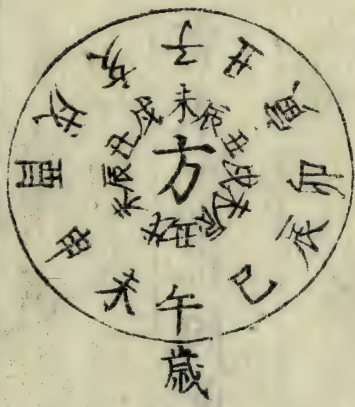 子丑寅卯辰巳午未申酉戌亥
未辰丑戌未辰丑戌未辰丑戌
方
歲